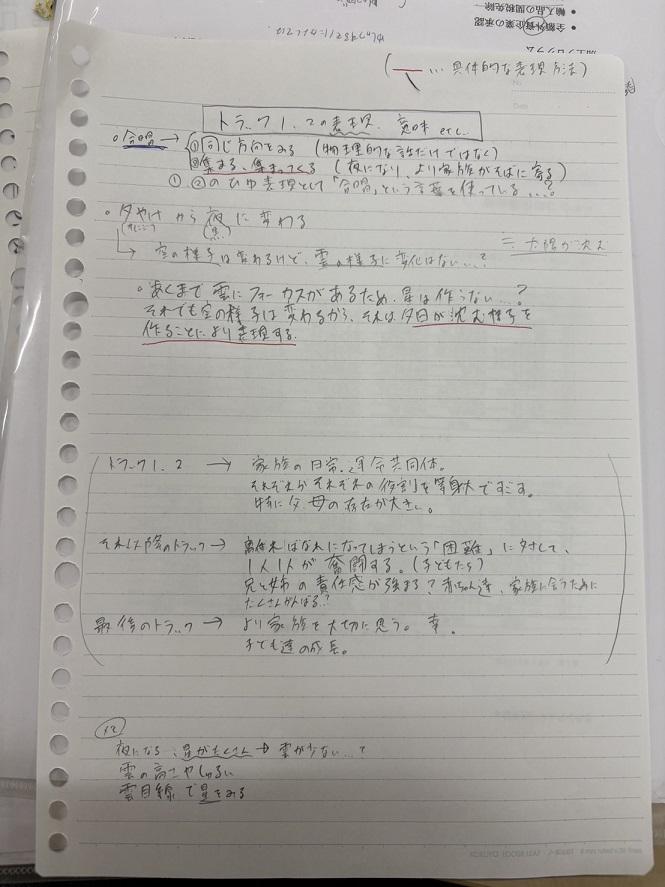 (― … 具体的な表現方法)
トラック1、2の表現、意味 etc..
◦合唱→ ①同じ方向をみる (物理的な話だけではなく)
②集まる、集まってくる (夜になり、より家族がそばに寄る)
①、②の 表現として「合唱」という言葉を使っている…?
◦夕やけから夜に変わる
(オレンジ) (黒)
→ 空の様子は変わるけど、雲の様子に変化はない…?
太陽が沈む
◦あくまで雲にフォーカスがあるため、星は作らない…?
それでも空の様子は変わるから、それは夕日が沈む様子を
作ることにより表現する。
トラック1、2 → 家族の日常、運命共同体。
それぞれがそれぞれの役割を等身大ですごす。
特に父、母の存在が大きい。
それ以降のトラック→ 離ればなれになってしまうという「困難」に対して、
1人1人が奮闘する。(子どもたち)
兄と姉の責任感が強まる? 赤ちゃん達、家族に会うために
たくさんがんばる?
最後のトラック → より家族を大切に思う。幸。
子ども達の成長。
夜になる、星がたくさん→雲が少ない…?
雲の高さやしゅるい
雲目線で星をみる